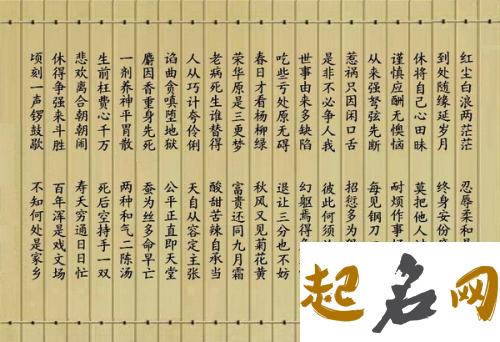 红尘白浪两茫茫 忍辱柔和
到处随缘延岁月 终身安份
休将自己心田昧 莫把他人
谨慎应酬无懊恼 耐烦作事
从来强弩弦先断 每见钢刀
惹祸只因闲口舌 招愆多为
是非不必争人我 彼此何须
世事由来多缺陷 幻躯焉得
吃些亏处原无碍 退让三分也不妨
春日才看杨柳绿 秋风又见菊花黄
荣华原是三更梦 富贵还同九月霜
老病死生谁替得 酸甜苦辣自承当
人从巧计夸伶俐 天自从容定主张
谄曲贪嗔堕地狱 公平正直即天堂
麝因香重身先死 蚕为丝多命早亡
一剂养神平胃散 两种和气二陈汤
生前枉费心千万 死后空持手一双
悲欢离合朝朝闹 寿夭穷通日日忙
休得争强来斗胜 百年浑是戏文场
顷刻一声锣鼓歇 不知何处是家乡
起名网